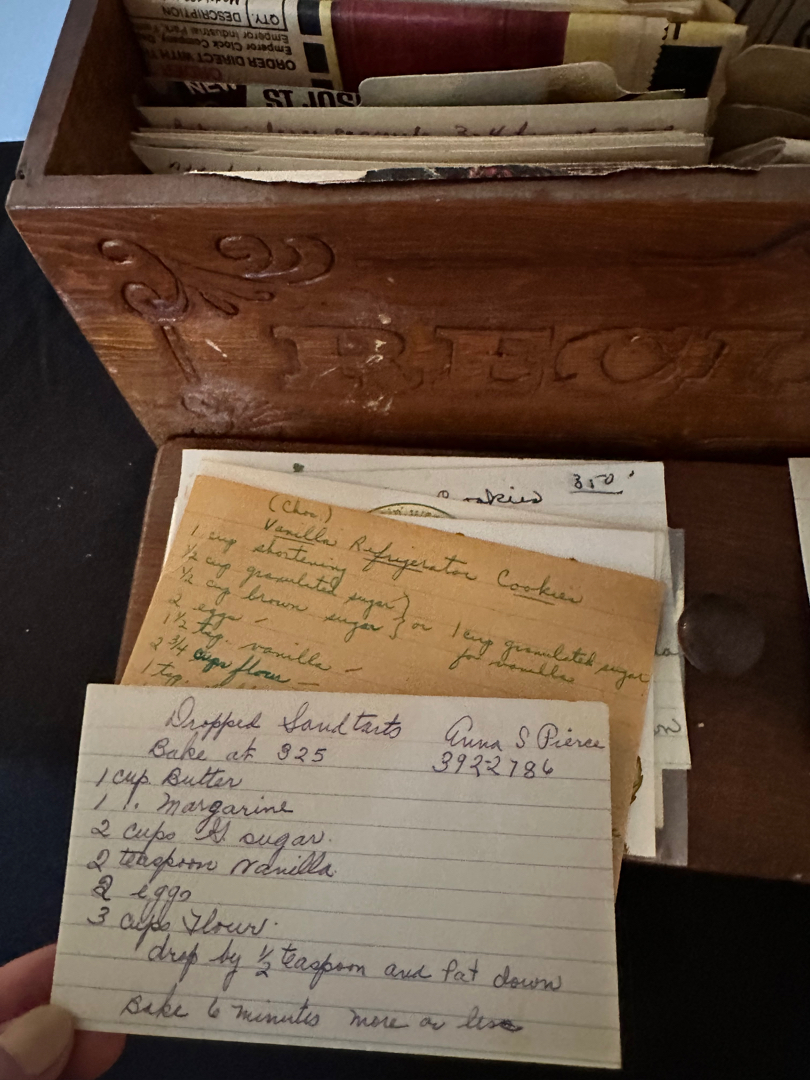 QTY.
DESCRIPTION
Emperor Clock Company
Emperor Industrial Park
ORDER DIRECT WITH
NEW
RECI
Cookies 350°
(Choc.)
Vanilla Refrigerator Cookies
1 cup shortening
1/2 cup granulated sugar }
1/2 cup brown sugar } or 1 cup granulated sugar
for vanilla
2 eggs -
1 1/2 tsp. vanilla -
2 3/4 cups flour -
1 tsp.
Dropped Sandtarts
Anna S Pierce
Bake at 325
392-2786
1 cup Butter
1 1. Margarine
2 cups G. sugar.
2 teaspoon vanilla
2 eggs
3 cups Flour.
drop by 1/2 teaspoon and Pat down
Bake 6 minutes more or less